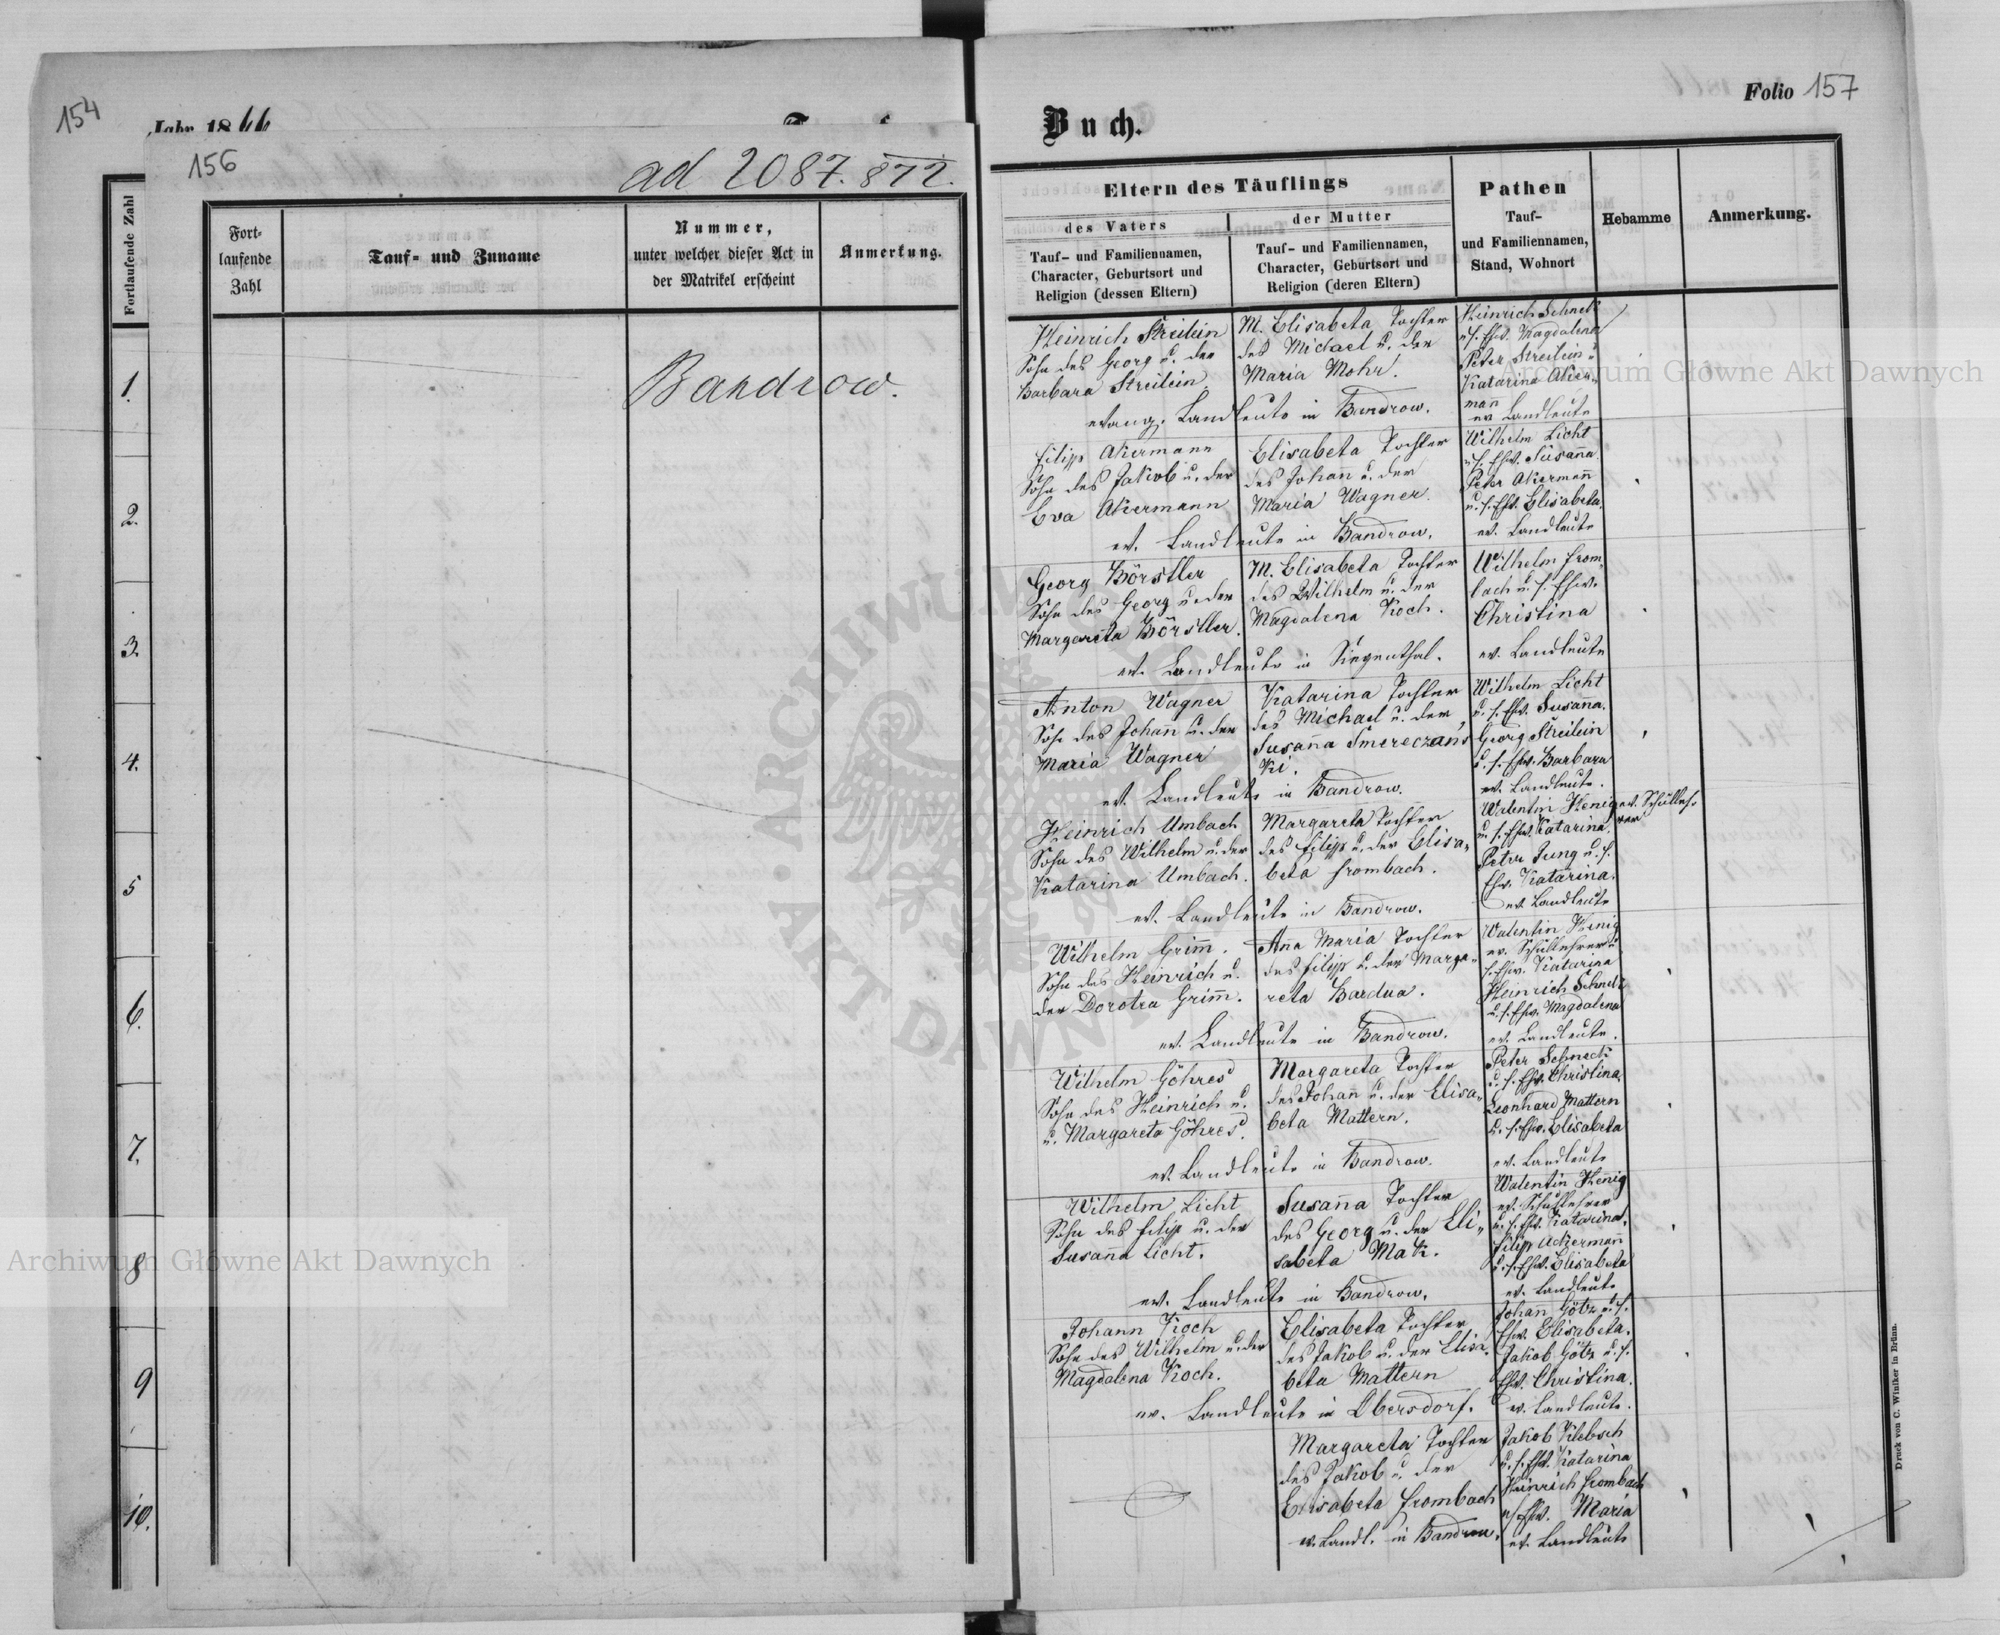 154
Jahr 1866
156
ad 2087. 872.
Fortlaufende Zahl
Fort-
laufende
Zahl
Tauf- und Zuname
Nummer,
unter welcher dieser Act in
der Matrikel erscheint
Anmerkung.
Bandrow.
1.
2.
3.
4.
5
6.
7.
8
9
10.
Folio 157
Buch.
Eltern des Täuflings
des Vaters
Tauf- und Familiennamen,
Character, Geburtsort und
Religion (dessen Eltern)
der Mutter
Tauf- und Familiennamen,
Character, Geburtsort und
Religion (deren Eltern)
Pathen
Tauf-
und Familiennamen,
Stand, Wohnort
Hebamme
Anmerkung.
Heinrich Streilein
Sohn des Georg u. der
Barbara Streilein.
M. Elisabeta Tochter
des Michael u. der
Maria Mohr.
evang. Landleute in Bandrow.
Heinrich Schneck
u. s. Ehw. Magdalena
Peter Streilein u
Katarina Aker-
man
ev Landleute
Filipp Akermann
Sohn des Jakob u. der
Eva Akermann
Elisabeta Tochter
des Johan u. der
Maria Wagner.
ev. Landleute in Bandrow.
Wilhelm Licht
u. s. Ehw. Susana.
Peter Akermañ
u. s. Ehw. Elisabeta.
ev. Landleute
Georg Börstler
Sohn des Georg u. der
Margareta Börstler.
M. Elisabeta Tochter
des Wilhelm u. der
Magdalena Koch.
ev. Landleute in Siegenthal.
Wilhelm From-
bach u. s. Ehw.
Christina
ev. Landleute
Anton Wagner
Sohn des Johan u. der
Maria Wagner
Katarina Tochter
des Michael u. der
Susaña Smereczans
Ki.
ev. Landleute in Bandrow.
Wilhelm Licht
u. s. Ehw. Susana.
Georg Streilein
u. s. Ehw. Barbara
ev. Landleute.
Heinrich Umbach
Sohn des Wilhelm u. der
Katarina Umbach.
Margareta Tochter
des Filipp u. der Elisa-
beta Frombach.
ev. Landleute in Bandrow.
Walentin Henig ev. Schulleh-
rer
u. s. Ehw. Katarina.
Peter Jung u. s.
Ehw. Katarina.
ev. Landleute
Wilhelm Grim̄.
Sohn des Heinrich u.
der Dorotea Grim̄.
Aña Maria Tochter
des Filipp u. der Marga-
reta Bardua.
ev. Landleute in Bandrow.
Walentin Henig
ev. Schullehrer u
s. Ehw. Katarina
Heinrich Schneck
u. s. Ehw. Magdalena
ev. Landleute.
Wilhelm Göhres
Sohn des Heinrich u.
u. Margareta Göhres.
Margareta Tochter
des Johañ u. der Elisa-
beta Mattern.
ev. Landleute in Bandrow.
Peter Schneck
u. s. Ehw. Christina.
Leonhard Mattern
u. s. Ehw. Elisabeta
ev. Landleute
Wilhelm Licht
Sohn des Filipp u. der
Susaña Licht.
Susaña Tochter
des Georg u. der Eli-
sabeta Mak.
ev. Landleute in Bandrow.
Walentin Heñig
ev. Schullehrer
u. s. Ehw. Katarina.
Filipp Ackermañ
u. s. Ehw. Elisabeta
ev. Landleute
Johann Koch
Sohn des Wilhelm u. der
Magdalena Koch.
Elisabeta Tochter
des Jakob u. der Elisa-
beta Mattern
ev. Landleute in Obersdorf.
Johañ Götz u. s.
Ehw. Elisabeta.
Jakob Götz u. s.
Ehw. Christina.
ev. Landleute.
Margareta Tochter
des Jakob u. der
Elisabeta Frombach
ev. Landl. in Bandrow.
Jakob Klebsch
u. s. Ehw. Katarina
Heinrich Frombach
u. s. Ehw. Maria
ev. Landleute
Druck von C. Winiker in Brünn.
Archiwum Główne Akt Dawnych
Archiwum Główne Akt Dawnych